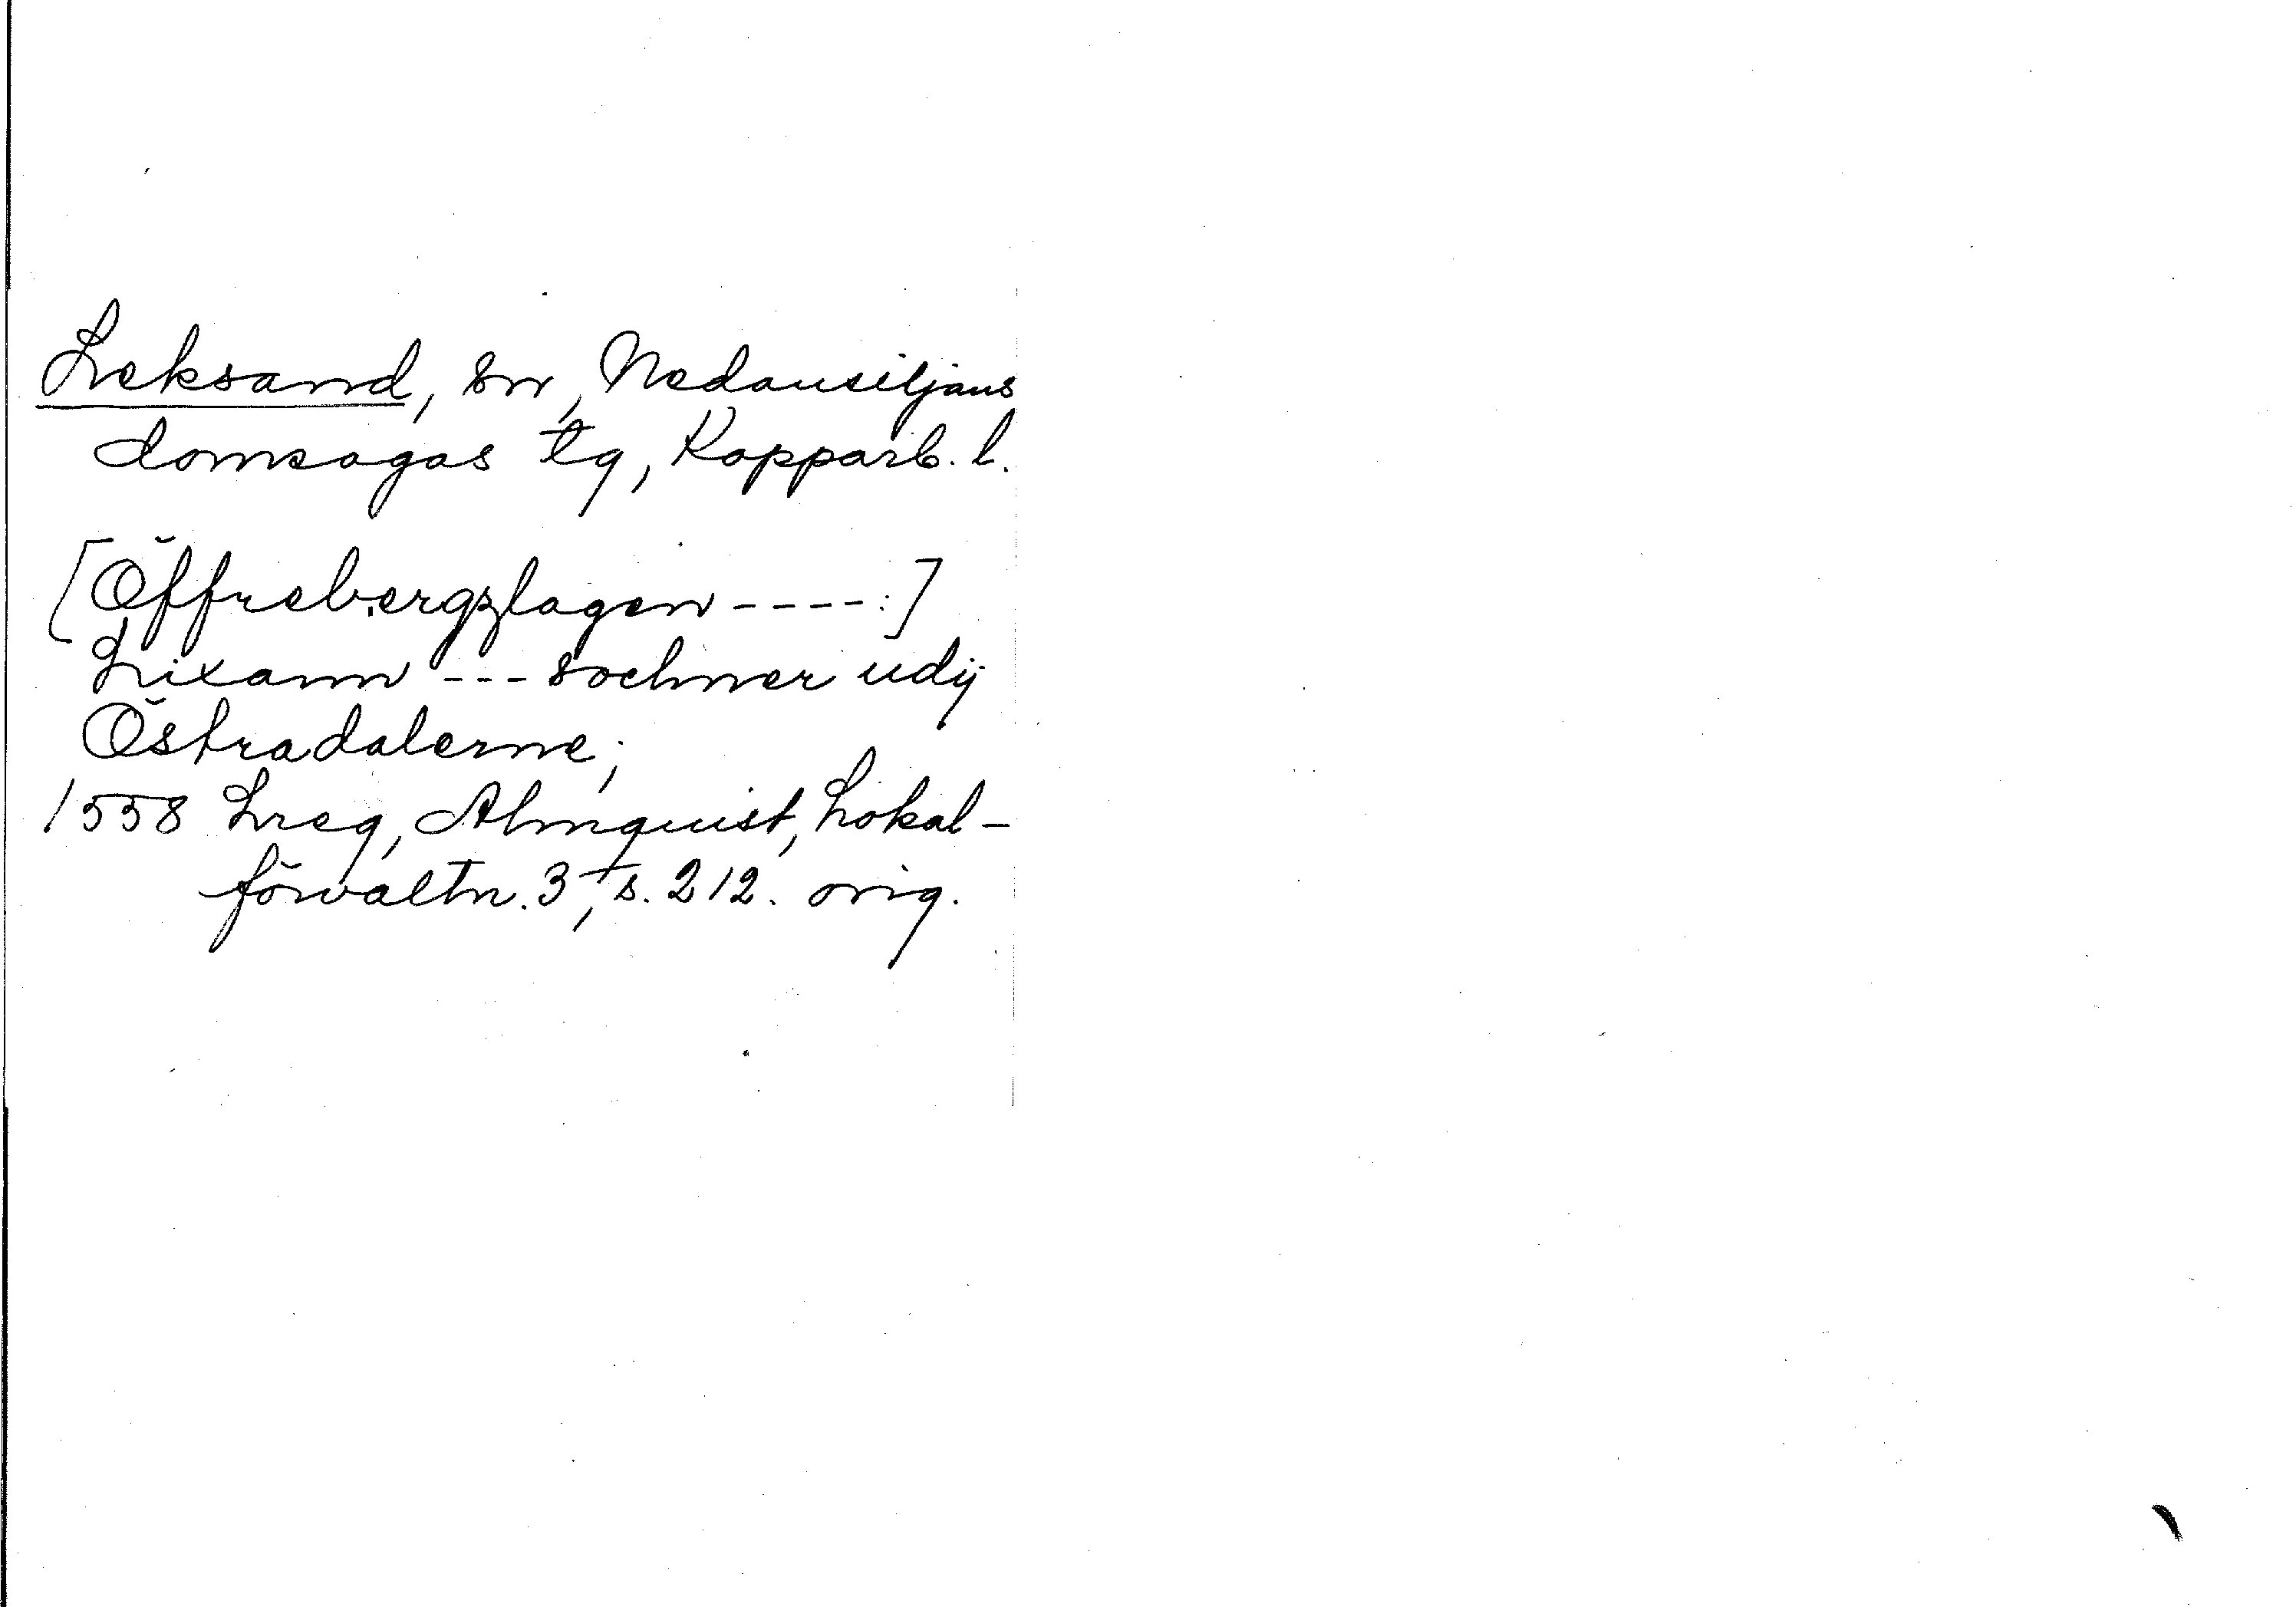 Leksand, sn, Nedansiljans
domsagas tg, Kopparb. l.
[Öffrebergzlagen ----:]
Lixann --- sochner udij
Östradalerne;
1558 Lreg, Almquist, Lokal-
förvaltn. 3, s. 212. orig.